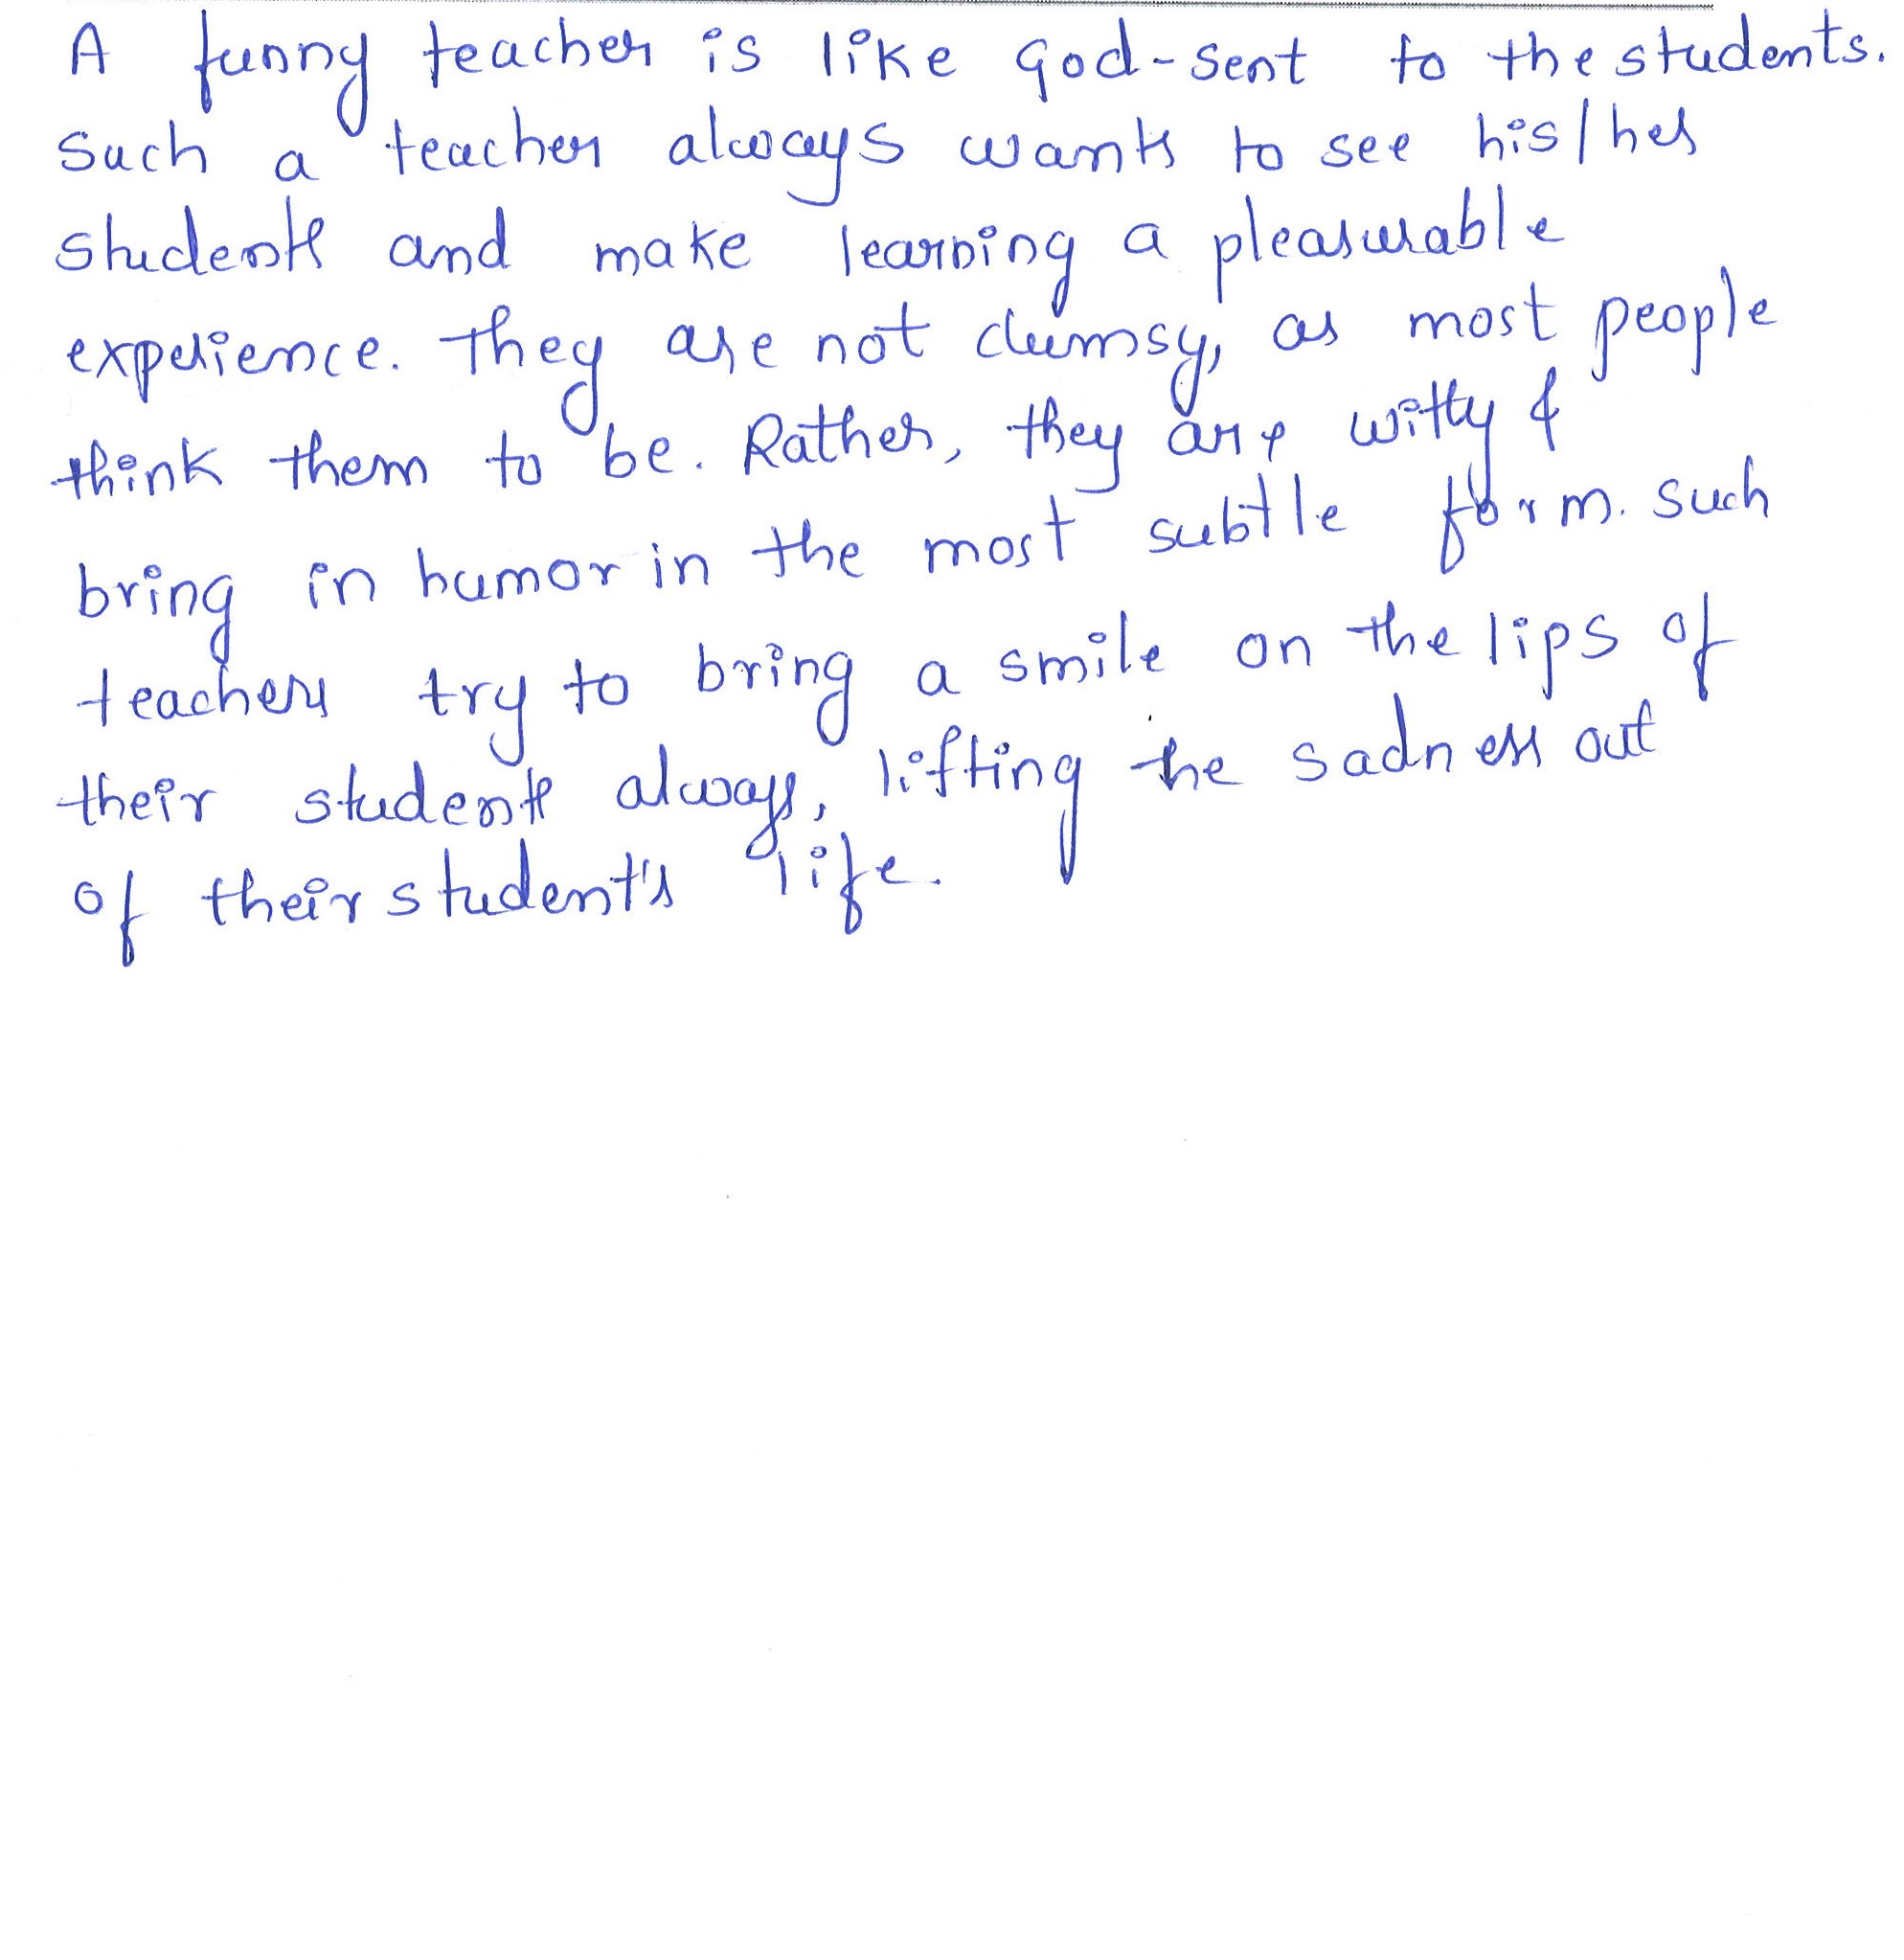 A funny teacher is like God-sent to the students.
Such a teacher always wants to see his/her
students and make learning a pleasurable
experience. They are not clumsy, as most people
think them to be. Rather, they are witty &
bring in humor in the most subtle form. Such
teachers try to bring a smile on the lips of
their students always, lifting the sadness out
of their student's life.